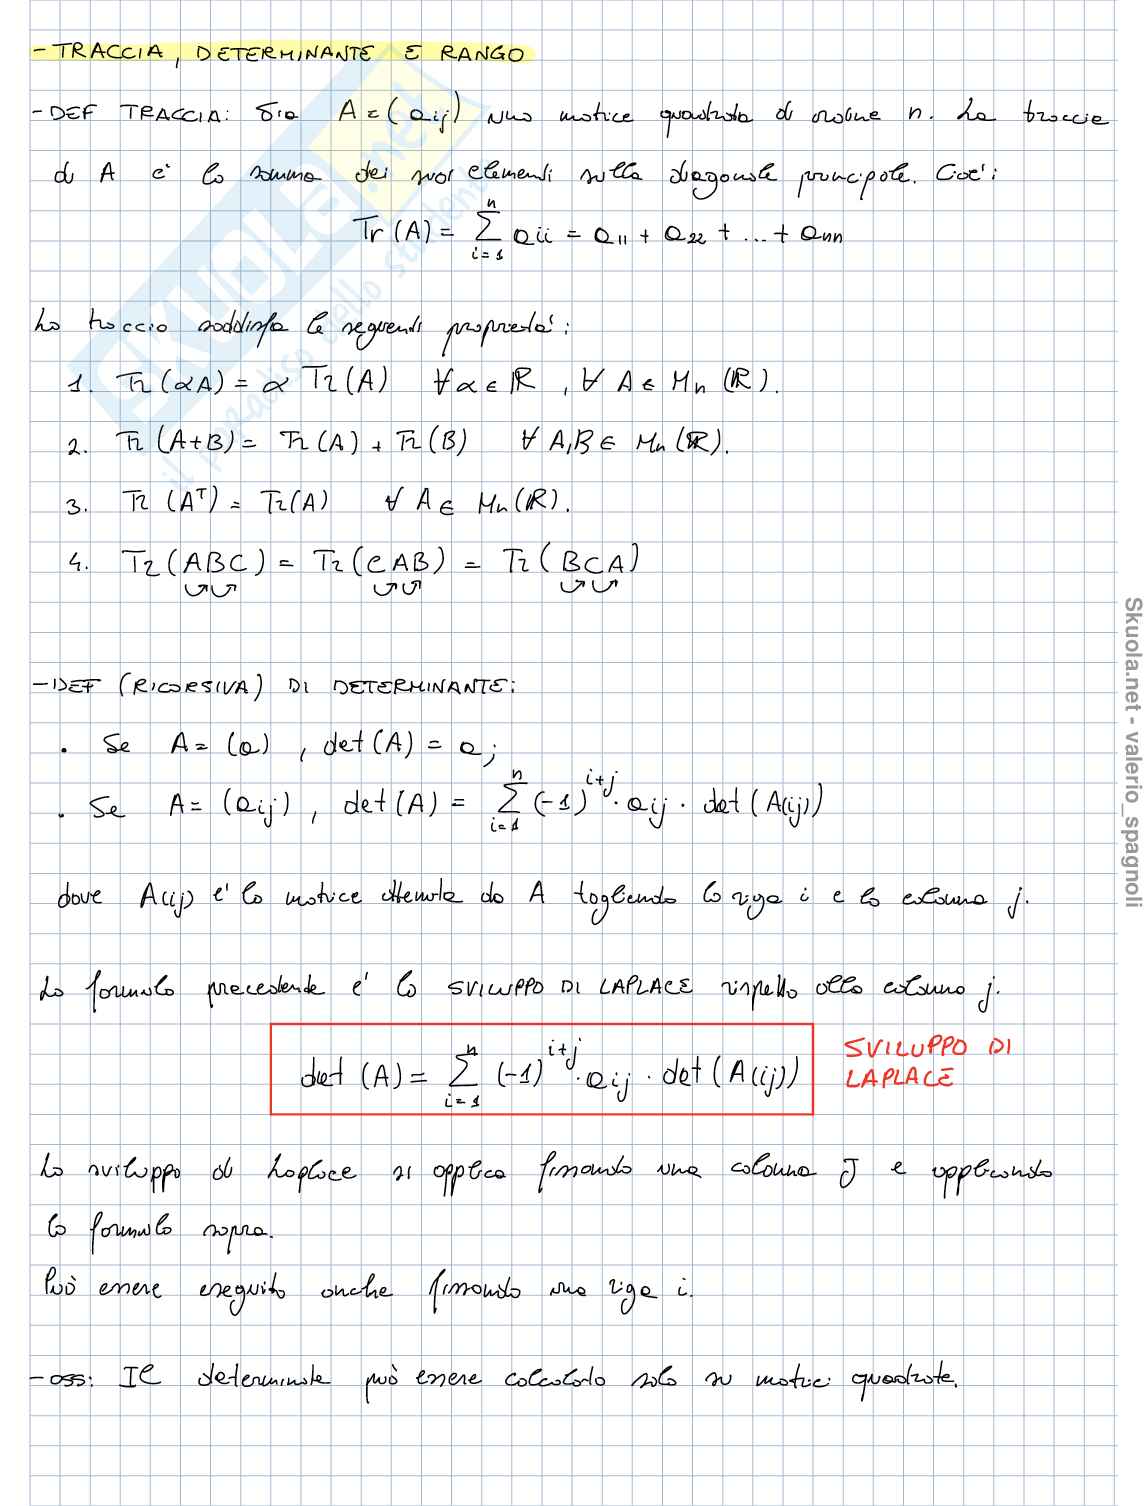 - TRACCIA, DETERMINANTE E RANGO
- DEF TRACCIA: Sia A = (aij) una matrice quadrata di ordine n. La traccia
di A e' la somma dei suoi elementi sulla diagonale principale. Cioe':
Tr(A) = ∑_{i=1}^{n} aii = a11 + a22 + ... + ann
La traccia soddisfa le seguenti proprieta':
1. Tr(αA) = α Tr(A) ∀α∈ℝ, ∀ A∈ Mn(ℝ).
2. Tr(A+B) = Tr(A) + Tr(B) ∀ A,B ∈ Mn(ℝ).
3. Tr(A^T) = Tr(A) ∀ A∈ Mn(ℝ).
4. Tr(ABC) = Tr(CAB) = Tr(BCA)
- DEF (RICORSIVA) DI DETERMINANTE:
. Se A = (a), det(A) = a;
. Se A = (aij), det(A) = ∑_{i=1}^{n} (-1)^{i+j} · aij · det(A(ij))
dove A(ij) e' la matrice ottenuta da A togliendo la riga i e la colonna j.
La formula precedente e' lo SVILUPPO DI LAPLACE rispetto alla colonna j.
det(A) = ∑_{i=1}^{n} (-1)^{i+j} · aij · det(A(ij))
SVILUPPO DI
LAPLACE
Lo sviluppo di Laplace si applica fissando una colonna J e applicando
la formula sopra.
Può essere eseguito anche fissando una riga i.
- OSS: Il determinante può essere calcolato solo su matrici quadrate.
SKUOLA.net
il paradiso dello studente
Skuola.net - valerio_spagnoli